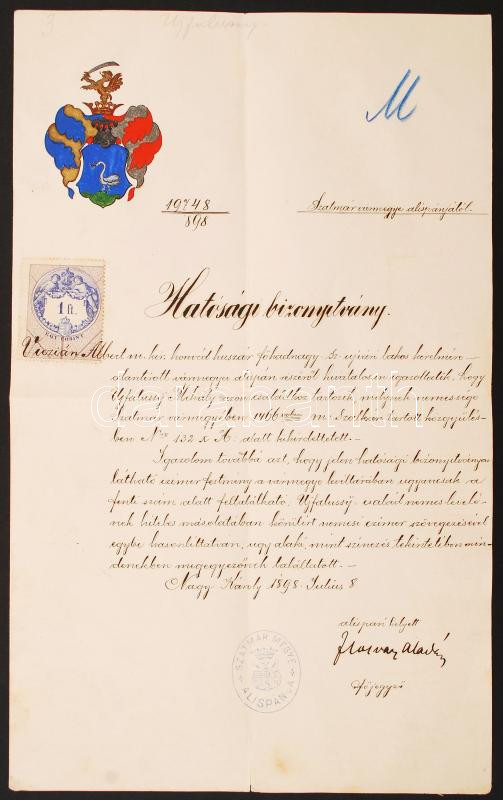 3 Ujfalussy
M
19748
898
Szatmár vármegye alispánjától.
Hatósági bizonyítvány.
1 ft.
EGY FORINT
Viczián Albert m. kir. honvéd huszár főhadnagy úr ujvári lakos kérelmére
alantirott vármegye alispán részéről hivatalosan igazoltatik, hogy
Ujfalussy Mihály azon családhoz tartozik melynek nemessége
Szatmár vármegyében m. tartott közgyűlés-
ben № 132 x A. alatt kihirdettetett. —
Igazolom továbbá azt, hogy jelen hatósági bizonyítványon
látható czimer festmény a vármegye levéltárában ugyancsak a
fenti szám alatt feltalálható, Ujfalussy család nemes levelé-
nek hiteles másolatában körülírt nemesi czimer szövegezésével
egybe hasonlíttatván, ugy alaki, mint szinezés tekintetében min-
denekben megegyezőnek találtatott. —
Nagy Károly 1898. Julius 8
alispán helyett
Ilosvay Aladár
főjegyző
SZATMÁR MEGYE ALISPÁNJA